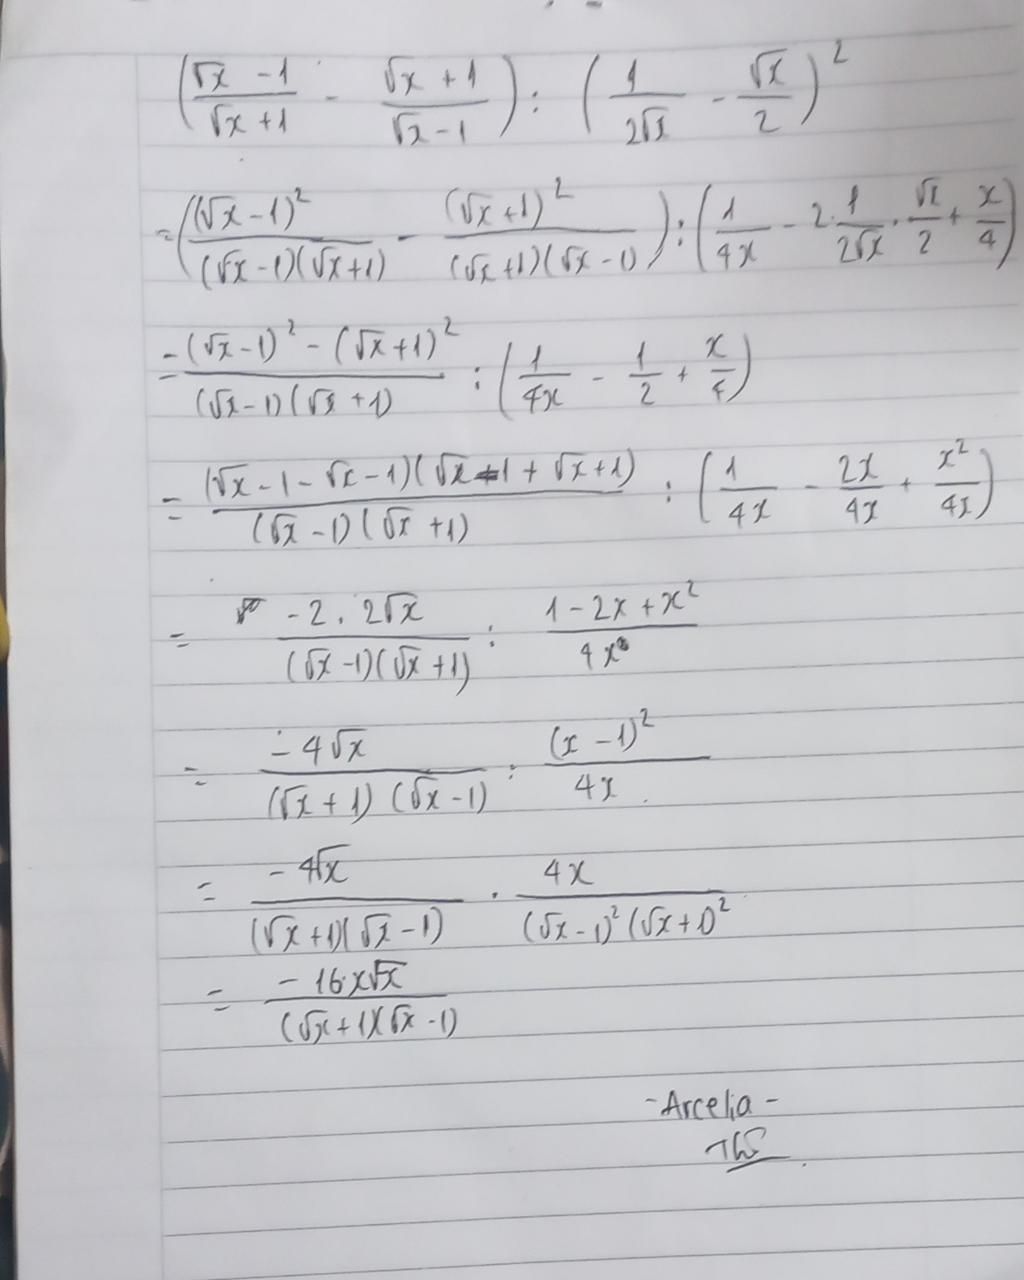 (√x - 1 / √x + 1 - √x + 1 / √x - 1) : (1 / 2√x - √x / 2)²
= ((√x - 1)² / (√x - 1)(√x + 1) - (√x + 1)² / (√x + 1)(√x - 1)) : (1 / 4x - 2 . 1 / 2√x . √x / 2 + x / 4)
= (√x - 1)² - (√x + 1)² / (√x - 1)(√x + 1) : (1 / 4x - 1 / 2 + x / 4)
= (√x - 1 - √x - 1)(√x - 1 + √x + 1) / (√x - 1)(√x + 1) : (1 / 4x - 2x / 4x + x² / 4x)
= -2 . 2√x / (√x - 1)(√x + 1) : 1 - 2x + x² / 4x
= -4√x / (√x + 1)(√x - 1) : (x - 1)² / 4x
= -4√x / (√x + 1)(√x - 1) . 4x / (√x - 1)²(√x + 1)²
= -16x√x / (√x + 1)(√x - 1)
- Arcelia -